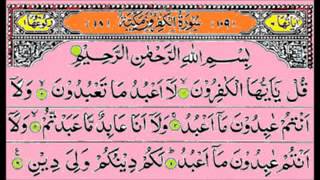 سُورَةُ الْكٰفِرُونَ مَكِّيَّةٌ
بِسْمِ اللّٰهِ الرَّحْمٰنِ الرَّحِيْمِ
قُلْ يٰٓاَيُّهَا الْكٰفِرُوْنَ ۝ لَآ اَعْبُدُ مَا تَعْبُدُوْنَ ۝ وَلَآ
اَنْتُمْ عٰبِدُوْنَ مَآ اَعْبُدُ ۝ وَلَآ اَنَا عَابِدٌ مَّا عَبَدْتُّمْ ۝ وَلَآ
اَنْتُمْ عٰبِدُوْنَ مَآ اَعْبُدُ ۝ لَكُمْ دِيْنُكُمْ وَلِيَ دِيْنِ ۝